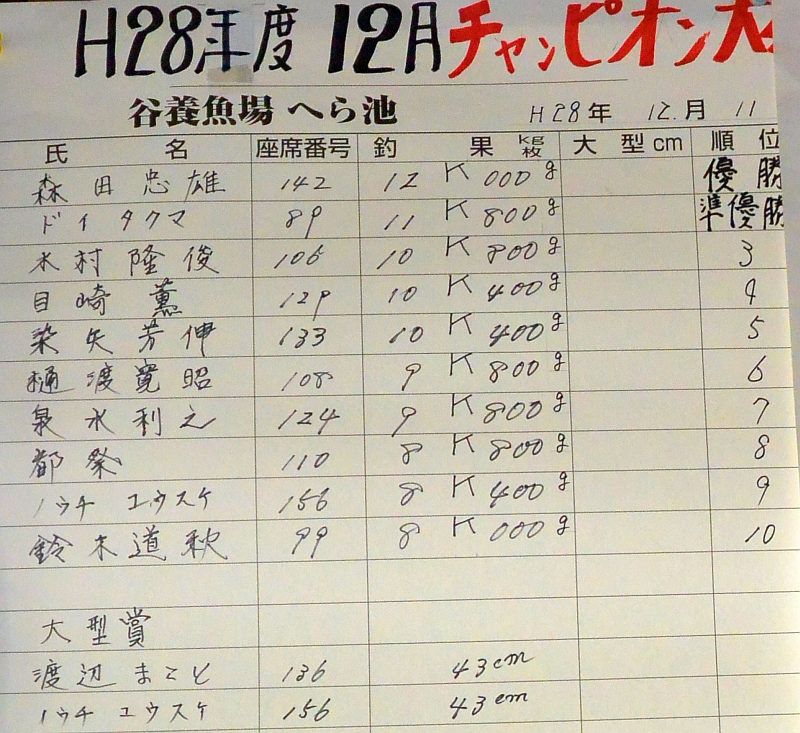 H28年度 12月チャンピオン大
谷養魚場 へら池 H28年 12.月 11
氏 名 座席番号 釣 果 kg枚 大 型 cm 順 位
森田忠雄 142 12 K 000 g 優勝
ドイタクマ 89 11 K 800 g 準優勝
木村隆俊 106 10 K 800 g 3
目崎 薫 129 10 K 400 g 4
染矢芳伸 133 10 K 400 g 5
樋渡寛昭 108 9 K 800 g 6
泉水利之 124 9 K 800 g 7
都祭 110 8 K 800 g 8
ノウチ ユウスケ 156 8 K 400 g 9
鈴木道秋 99 8 K 000 g 10
大型賞
渡辺まこと 136 43cm
ノウチ ユウスケ 156 43cm